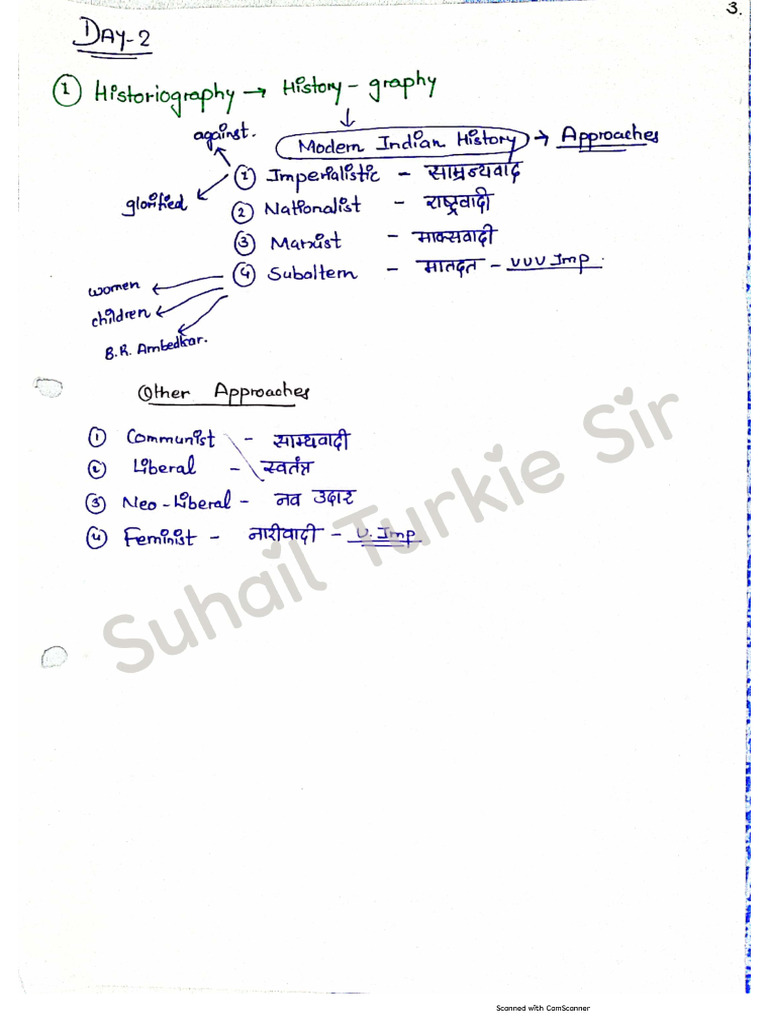 3.
DAY-2
① Historiography → History - graphy
↓
Modern Indian History → Approaches
against.
glorified
① Imperialistic - साम्रज्यवाद
② Nationalist - राष्ट्रवादी
③ Marxist - माक्सवादी
④ Subaltern - मातदत - VVV Imp.
women
children
B.R. Ambedkar.
Other Approaches
① Communist - साम्यवादी
② Liberal - स्वतंत्र
③ Neo-Liberal - नव उदार
④ Feminist - नारीवादी - V. Imp
Suhail Turkie Sir
Scanned with CamScanner